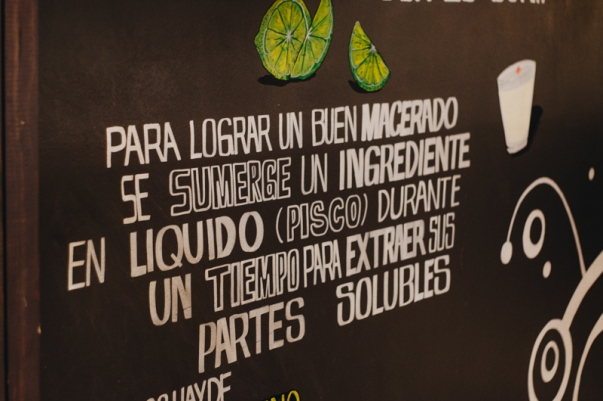 PARA LOGRAR UN BUEN MACERADO
SE SUMERGE UN INGREDIENTE
EN LIQUIDO (PISCO) DURANTE
UN TIEMPO PARA EXTRAER SUS
PARTES SOLUBLES